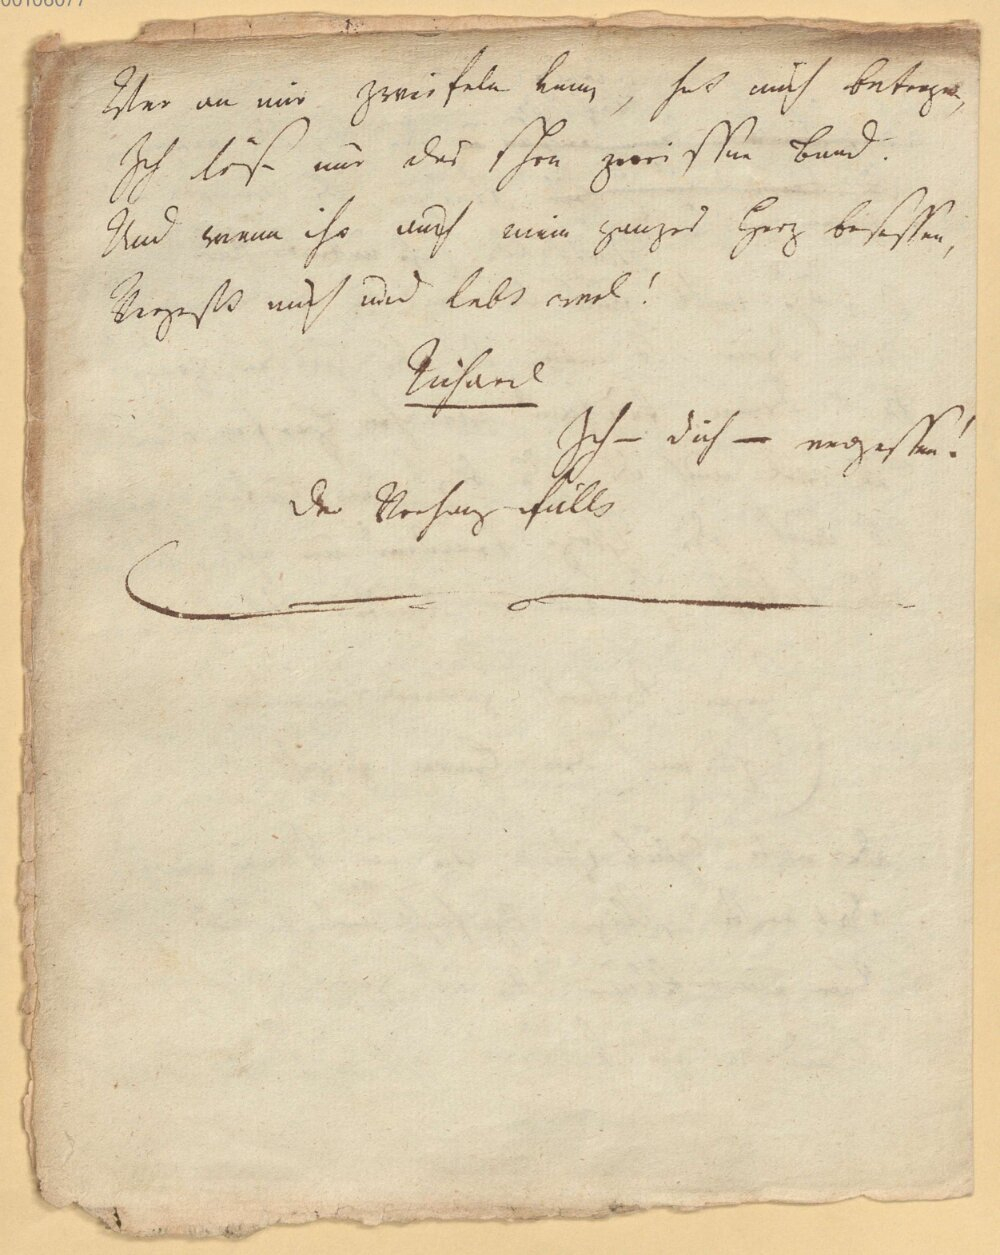 00106077
Wer an mir zweifeln kann, hat mich betrogen,
Ich löse nur das schon zerrissne Band.
Und wenn ihr auch mein ganzes Herz besessen,
Vergeßt mich und lebt wol!
Richard
Ich – dich – vergessen!
Der Vorhang fällt